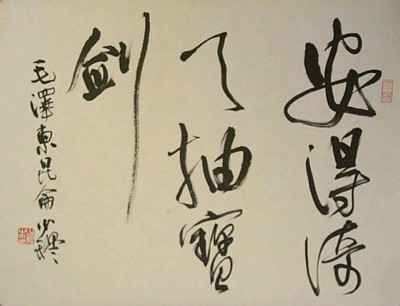 安得倚
天抽寶
劍
毛澤東昆侖少